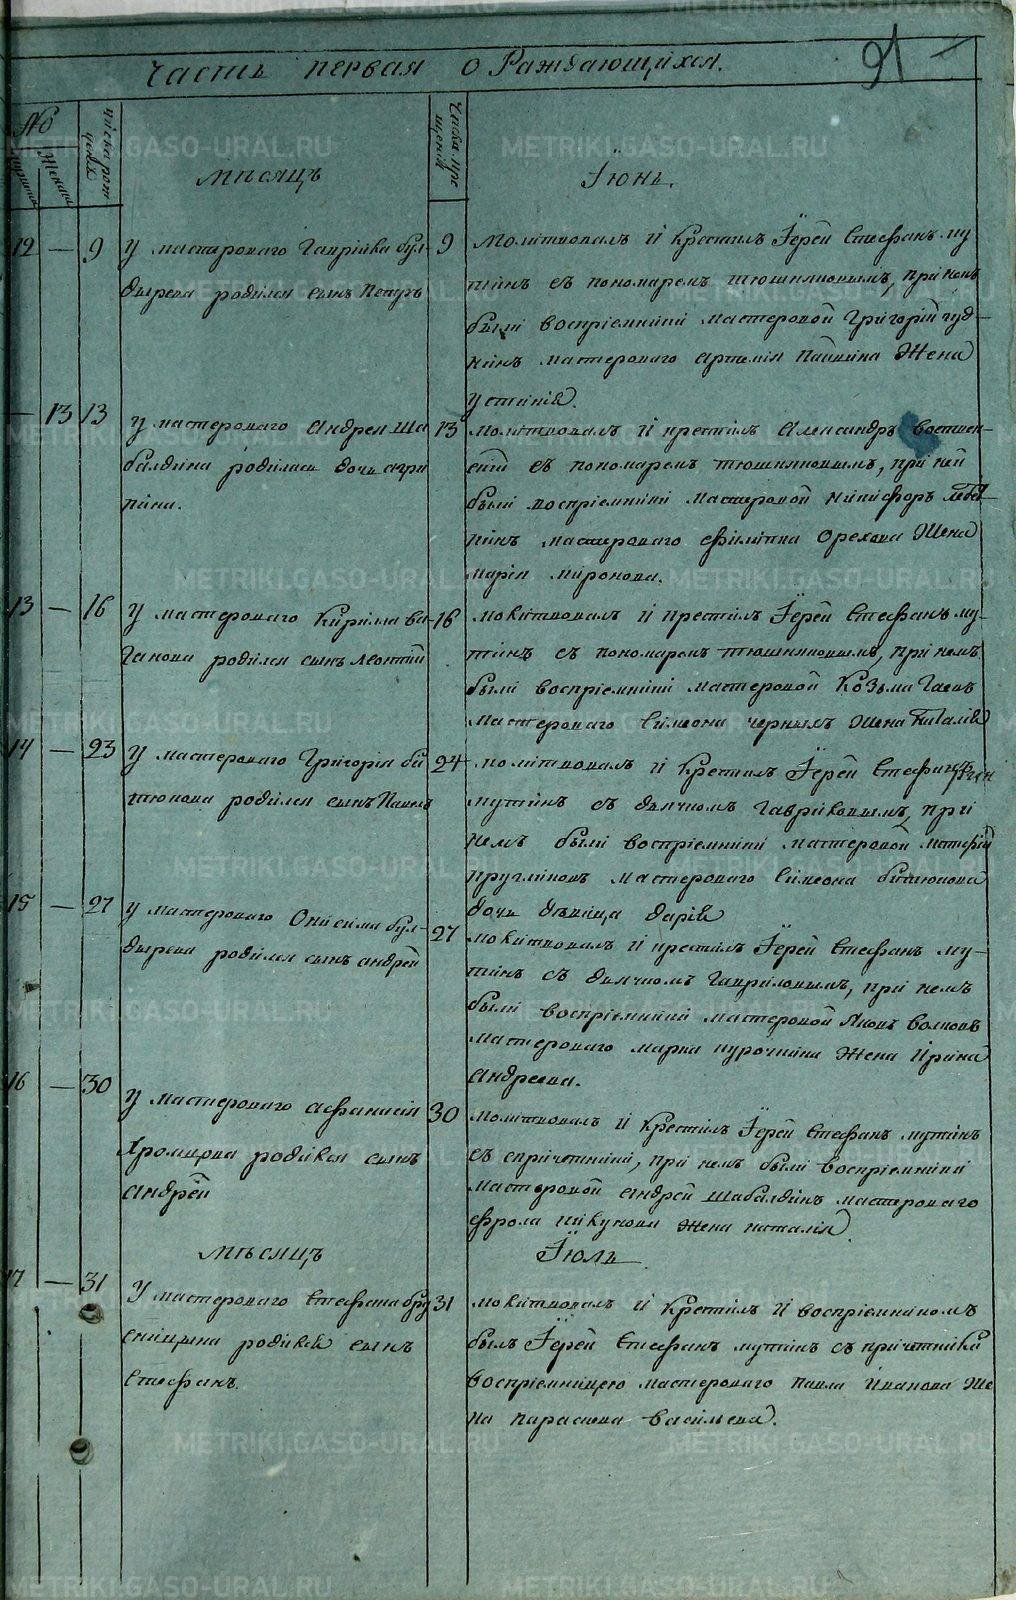 91
Часть первая о Раждающихся.
№
Женска
числа рож
Мѣсяцъ
Числа кре
щенія
Іюнь.
12 — 9 У мастероваго Гаврійла бул-
дырева родился сынъ Петръ
9 Молитвовалъ и Крестилъ Іерей Стефанъ му
тинъ съ пономаремъ тюшняковымъ, при немъ
были воспріемники мастеровой Григорій
мастероваго артемія Жена
устинія.
— 13 13 у мастероваго Андрея Ша
балдина родилась дочь агри
пина.
13 молитвовалъ и крестилъ Александръ
съ пономаремъ тюшняковымъ, при ней
были воспріемники мастеровой никифоръ
мастероваго филиппа Орехова Жена
марія миронова.
13 — 16 У мастероваго Кирилла ва
ганова родился сынъ леонтій
16 молитвовалъ и крестилъ Іерей Стефанъ му-
тинъ съ пономаремъ тюшняковымъ, при немъ
были воспріемники мастеровой Козьма Гаевъ
мастероваго Симеона черныхъ жена
14 — 23 У мастероваго Григорія би
тюкова родился сынъ Павелъ
24 молитвовалъ и Крестилъ Іерей Стефанъ
мутинъ съ дьячкомъ Гавриловымъ, при
немъ были воспріемники мастеровой матфѣй
кругликовъ мастероваго Симеона битюкова
дочь дѣвица дарія
15 — 27 у мастероваго Онисима бул-
дырева родился сынъ андрей
27 молитвовалъ и крестилъ Іерей Стефанъ му-
тинъ съ дьячкомъ Гавриловымъ, при немъ
были воспріемники мастеровой Яковъ волковъ
мастероваго марка курочкина Жена Ирина
андреева.
16 — 30 У мастероваго афанасія
Хромцова родился сынъ
андрей
30 молитвовалъ и Крестилъ Іерей Стефанъ мутинъ
съ спричетники, при немъ были воспріемники
мастеровой андрей шабалдинъ мастероваго
фрола пикунова жена наталія.
Мѣсяцъ
Іюль
17 — 31 У мастероваго Стефана бру
сницына родился сынъ
Стефанъ.
31 молитвовалъ и Крестилъ и воспріемникомъ
былъ Іерей Стефанъ мутинъ съ причетники
воспріемницею мастероваго павла Иванова Же
на параскева васильева.
METRIKI.GASO-URAL.RU